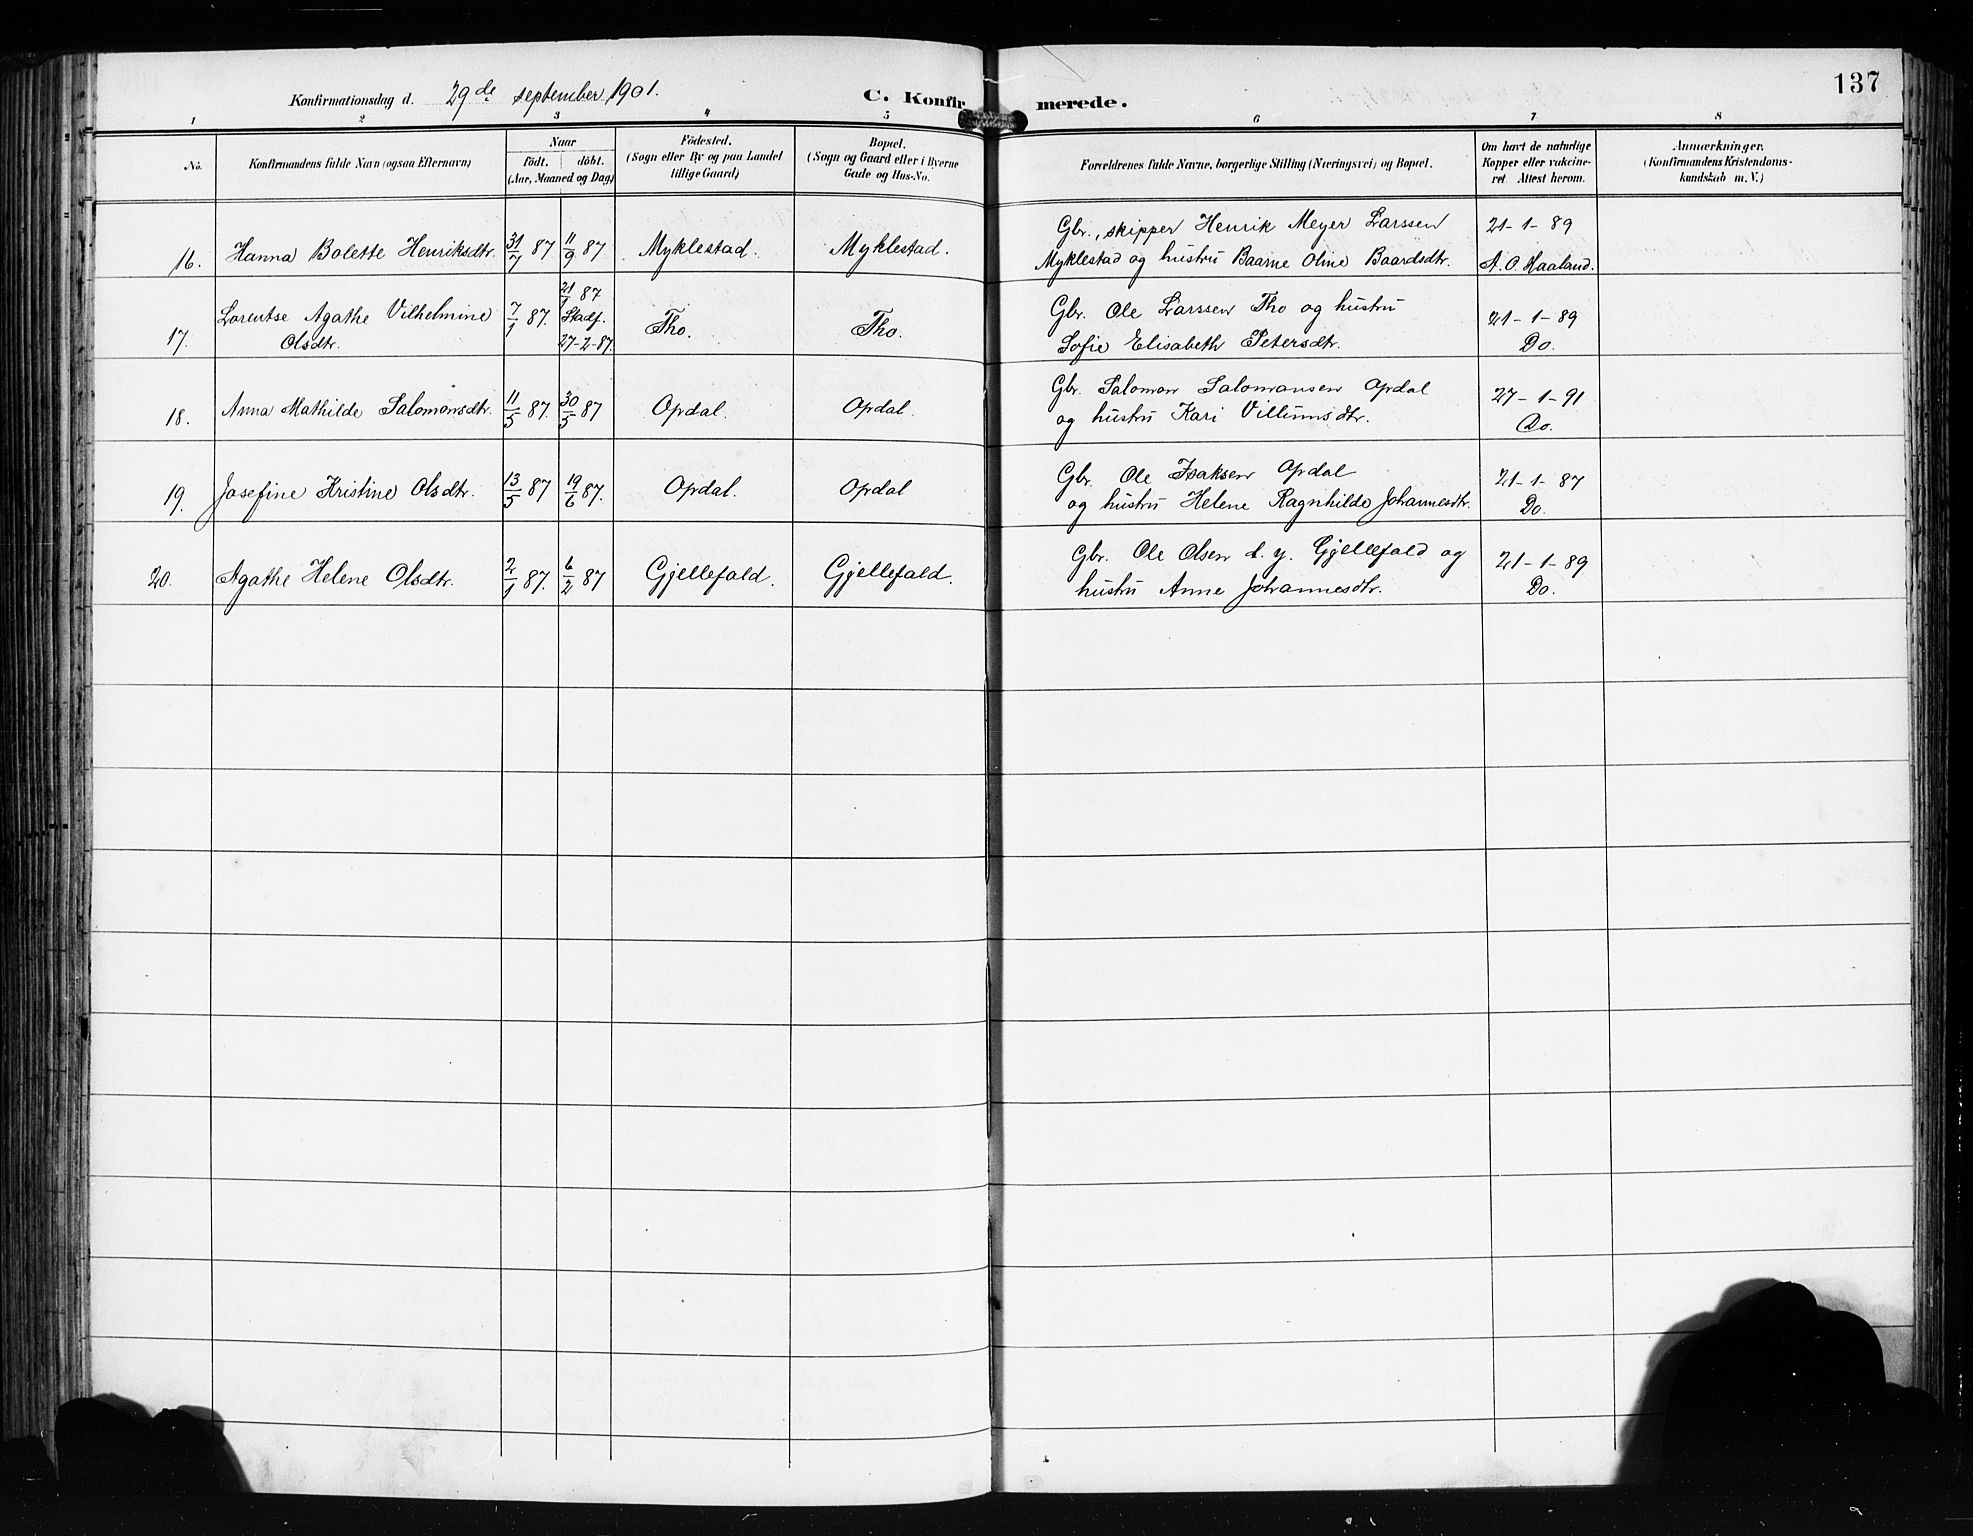 137
Konfirmationsdag d. 29de september 1901.
C. Konfirmerede.
1 2 3 4 5 6 7 8
No.
Konfirmandens fulde Navn (ogsaa Efternavn)
Naar
født. døbt.
(Aar, Maaned og Dag)
Fødested.
(Sogn eller By og paa Landet
tillige Gaard)
Bopæl.
(Sogn og Gaard eller i Byerne
Gade og Hus-No.
Forældrenes fulde Navne, borgerlige Stilling (Næringsvei) og Bopæl.
Om havt de naturlige
Kopper eller vakcine-
ret. Attest herom.
Anmærkninger.
(Konfirmandens Kristendoms-
kundskab m. V.)
16. Hanna Bolette Henriksdtr. 31/7 87 11/9 87 Myklestad. Myklestad.
Gbr., skipper Henrik Meyer Larssen
Myklestad og hustru Baarne Oline Baardsdtr.
21-1-89
A. O. Haaland.
17. Lorentse Agathe Vilhelmine
Olsdtr.
7/1 87. 21/1 87
Stadf.
27-2-87.
Tho. Tho.
Gbr. Ole Larssen Tho og hustru
Sofie Elisabeth Petersdtr.
21-1-89
Do.
18. Anna Mathilde Salomonsdtr. 11/5 87. 30/5 87 Opdal. Opdal.
Gbr. Salomon Salomonsen Opdal
og hustru Kari Villumsdtr.
27-1-91
Do.
19. Josefine Kristine Olsdtr. 13/5 87 19/6 87. Opdal. Opdal
Gbr. Ole Isaksen Opdal
og hustru Helene Ragnhilde Johannesdtr.
21-1-87
Do.
20. Agathe Helene Olsdtr. 2/1 87. 6/2 87 Gjellefald. Gjellefald.
Gbr. Ole Olsen d. y. Gjellefald og
hustru Anne Johannesdtr.
21-1-89
Do.